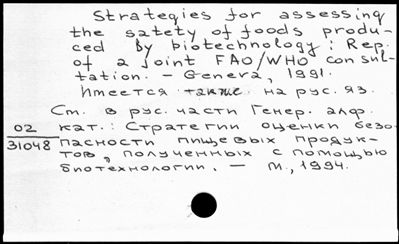 Strategies for assessing
the satety of foods produ-
ced by biotechnology: Rep.
of a Joint FAO/WHO consul-
tation. – Geneva, 1991.
Имеется также на рус. яз.
См. в рус. части Генер. алф.
02 кат.: Стратегии оценки безо-
31048 пасности пищевых продук-
тов, полученных с помощью
биотехнологии. – М., 1994.